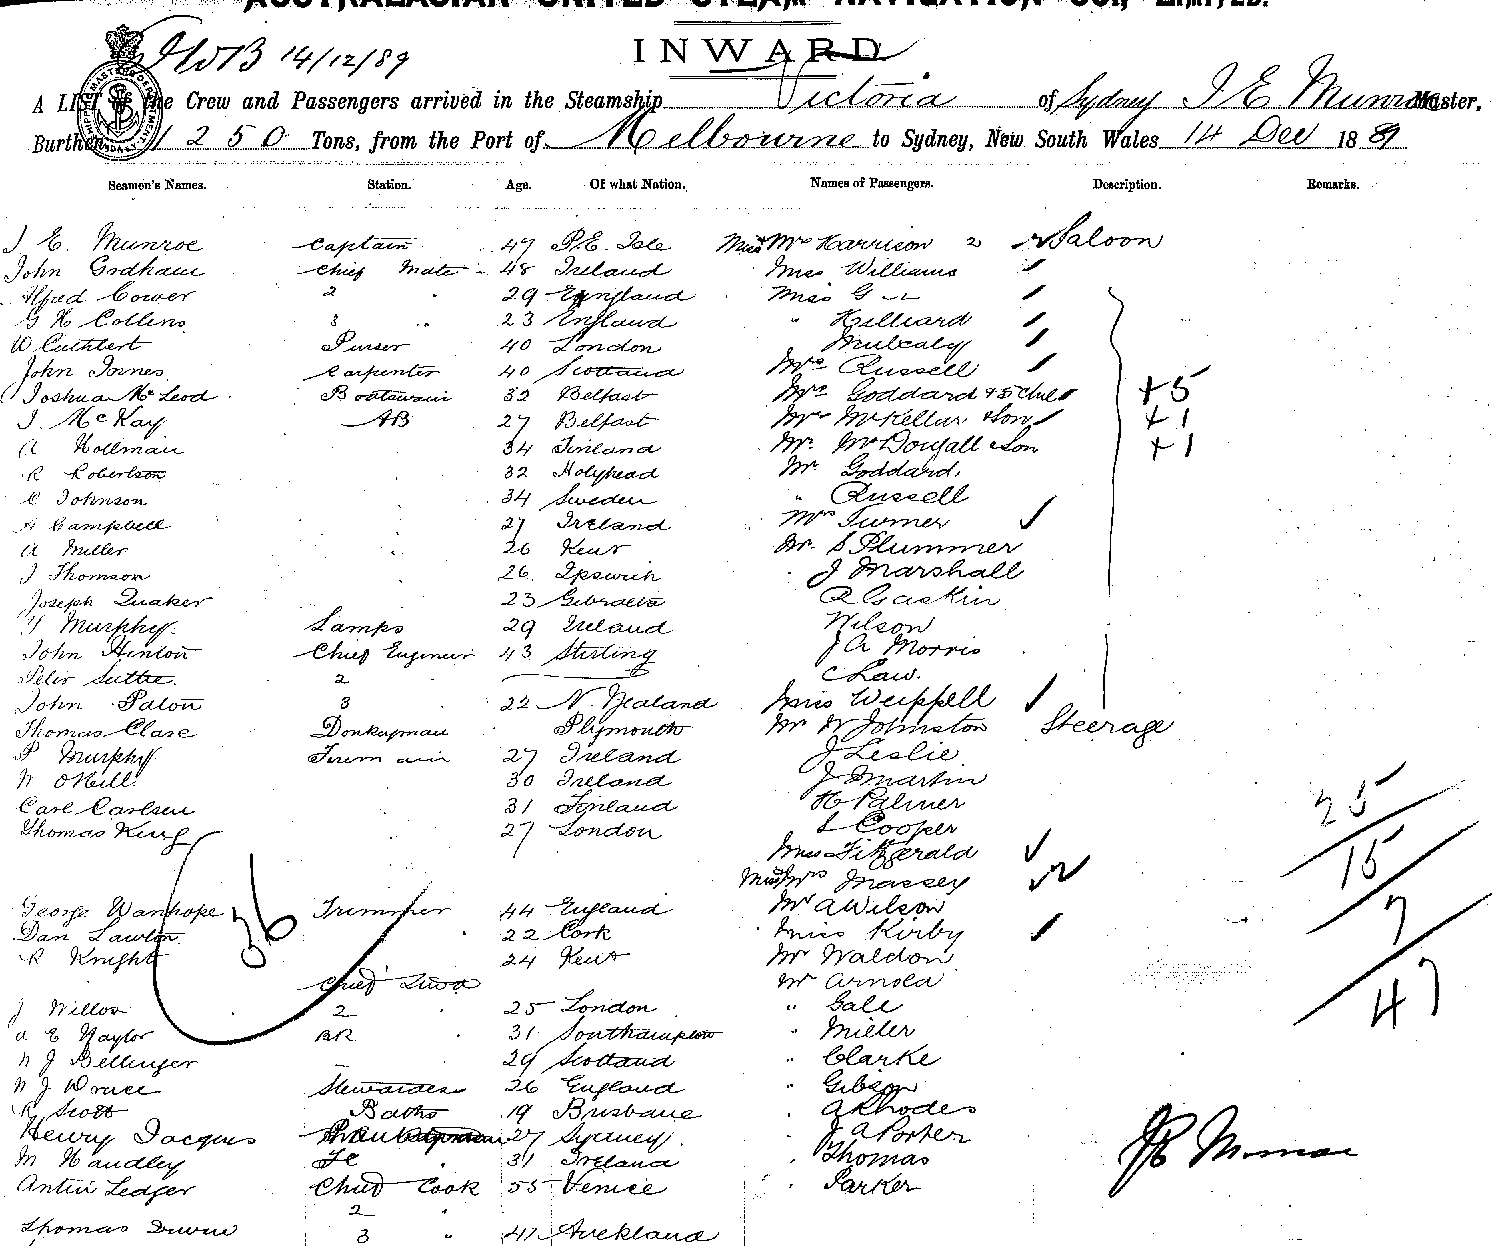 AUSTRALASIAN UNITED STEAM NAVIGATION CO., LIMITED.
14/12/89 INWARD
A LIST of the Crew and Passengers arrived in the Steamship Victoria of Sydney J E Munroe Master,
Burthen 1250 Tons, from the Port of Melbourne to Sydney, New South Wales 14 Dec 1889
Seamen's Names. Station. Age. Of what Nation. Names of Passengers. Description. Remarks.
J E. Munroe Captain 47 P.E. Isle Miss Mrs Harrison 2 Saloon
John Chief Mate 48 Ireland Miss Williams
Alfred Cower 2 " 29 England Miss G
G H Collins 3 " 23 England " Hilliard
W Cuthbert Purser 40 London Mulcahy
John Carpenter 40 Scotland Mrs Russell
Joshua McLeod Boatswain 32 Belfast Mrs Goddard + 5 Chil +5
J. McKay AB 27 Belfast Mrs McKellar & Son +1
A Hollman 34 Finland Mr. McDougall & Son +1
R Robertson 32 Holyhead Mr Goddard
C Johnson 34 Sweden " Russell
A Campbell 27 Ireland Mrs Turner
A Miller 26 Kent Mr. S Plummer
J Thomson 26. Ipswich J Marshall
Joseph Quaker 23 Gibralta R Gaskin
T Murphy. Lamps 29 Ireland Wilson
John Hinton Chief Engineer 43 Stirling J A Morris
Peter 2 C Law.
John Paton 3 22 N. Zealand Miss Weippell
Thomas Clare Donkeyman Plymouth Mr W Johnston Steerage
P Murphy Fireman 27 Ireland J Leslie
W O'Neill 30 Ireland J Martin
Carl Carlsen 31 Finland H Palmer 25
Thomas King 27 London S Cooper
Miss Fitzgerald 15
Miss Mrs Massey
George Wanhope 36 Trimmer 44 England Mr A Wilson 7
Dan Lawton 22 Cork Miss Kirby
R Knight 24 Kent Mr Waldon
Chief Mr Arnold 47
J Willox 2 25 London " Gall
A E Naylor BR 31 Southampton " Miller
W J Bellinger 29 Scotland " Clarke
W J Druce Stewardess 26 England " Gibson
R Scott Baths 19 Brisbane A Rhodes
Henry Jacques 27 Sydney. J A Porter
M Handley 31 Ireland Thomas J E Munroe
Ledger Chief Cook 55 Venice Parker
2 "
Thomas 3 " 41 Auckland